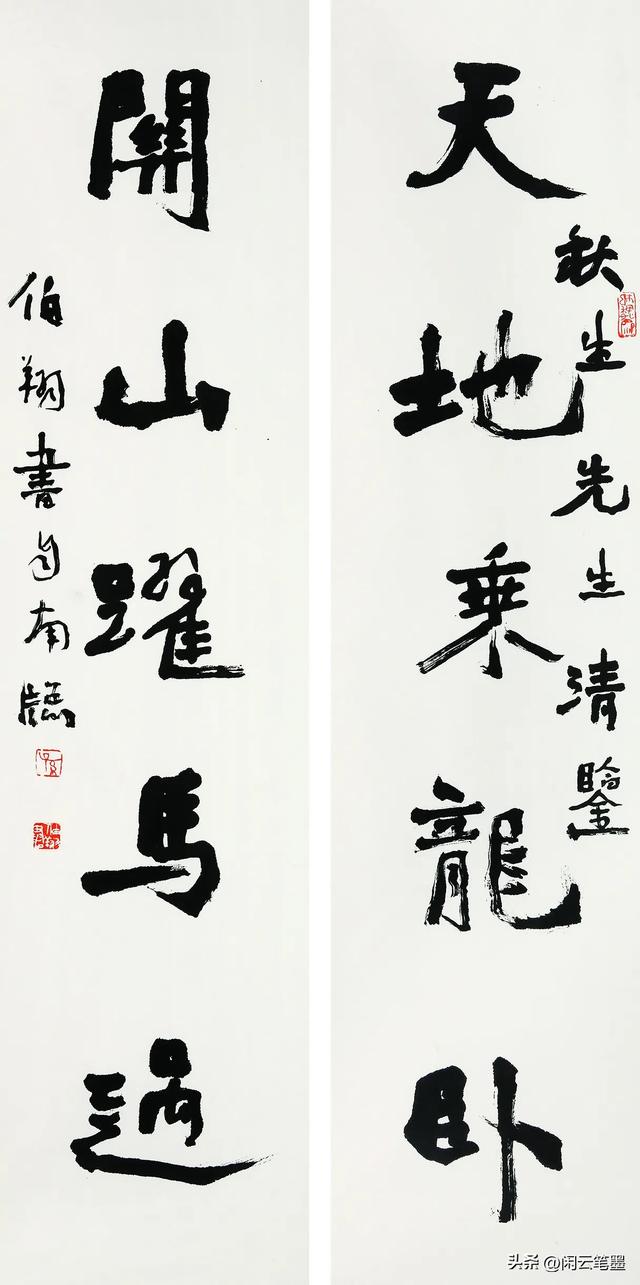 秋生先生清鑒
天地乘龍卧
關山躍馬過
伯翔書自南牕
头条 @闲云笔墨